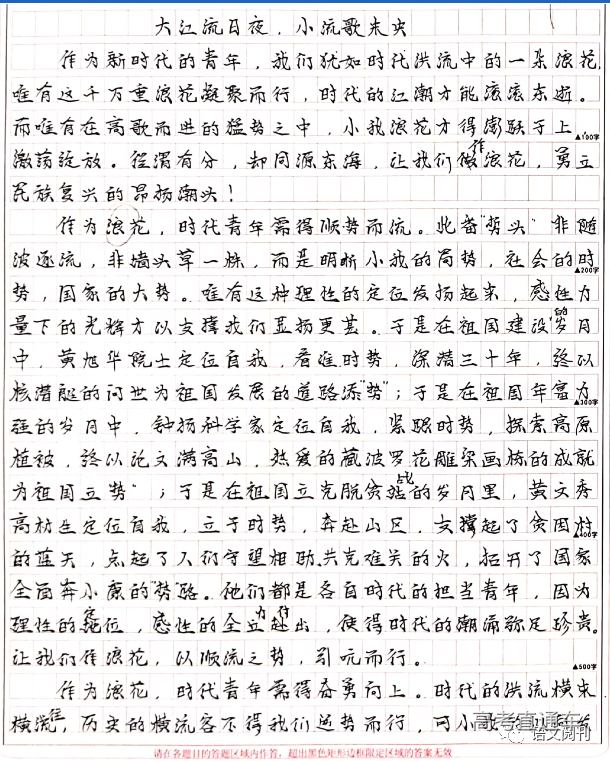 大江流日夜，小流歌未央
作为新时代的青年，我们犹如时代洪流中的一朵浪花，
唯有这千万重浪花凝聚而行，时代的江潮才能滚滚东逝。
而唯有在高歌而进的猛势之中，小我浪花才得澎跃于上，
▲100字
激荡绽放。泾渭有分，却同源东海，让我们作浪花，勇立
民族复兴的昂扬潮头！
作为浪花，时代青年需得顺势而流。此番"势头"非随
波逐流，非墙头草一株，而是明晰小我的局势，社会的时
▲200字
势，国家的大势。唯有这种理性的定位发扬起来，感性力
量下的光辉才以支撑我们显扬更甚。于是在祖国建设的岁月
中，黄旭华院士定位自我，看准时势，深潜三十年，终以
核潜艇的问世为祖国发展的道路添"势"；于是在祖国年富力
▲300字
强的岁月中，钟扬科学家定位自我，紧跟时势，探索高原
植被，终以论文满高山，热爱的藏波罗花雕梁画栋的成就
为祖国立势"；于是在祖国立克脱贫战的岁月里，黄文秀
高材生定位自我，立于时势，奔赴山区，支撑起了贫困村
▲400字
的蓝天，点起了人们守望相助、共克难关的火，拓开了国家
全面奔小康的"势"路。他们都是各自时代的担当青年，因为
理性的定位，感性的全力付出，使得时代的潮涌弥足珍贵。
让我们作浪花，以顺流之势，引吭而行。
▲500字
作为浪花，时代青年需得奋勇向上。时代的洪流横来
横往，历史的横流容不得我们逆势而行，可小
高考直通车
语文阅刊
请在各题目的答题区域内作答，超出黑色矩形边框限定区域的答案无效